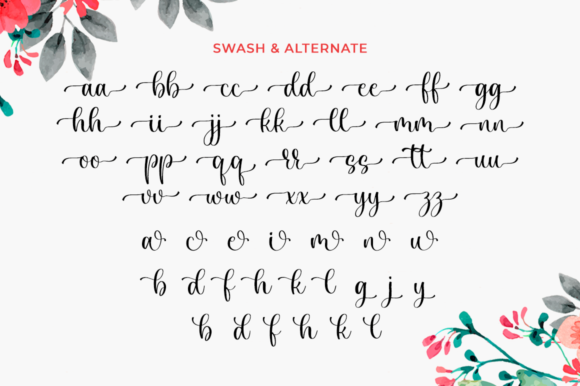 SWASH & ALTERNATE
aa bb cc dd ee ff gg
hh ii jj kk ll mm nn
oo pp qq rr ss tt uu
vv ww xx yy zz
a c e i m n u
b d f h k l g j y
b d f h k l